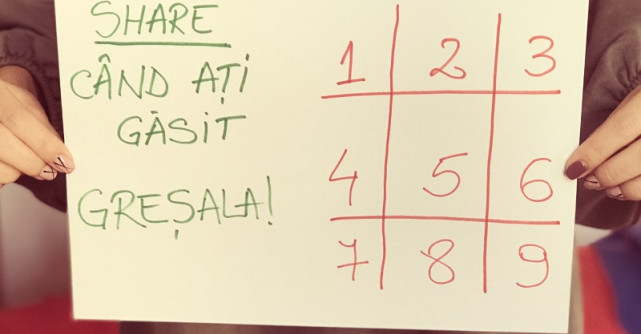 SHARE
CÂND AȚI
GĂSIT
GREȘALA!
1 2 3
4 5 6
7 8 9